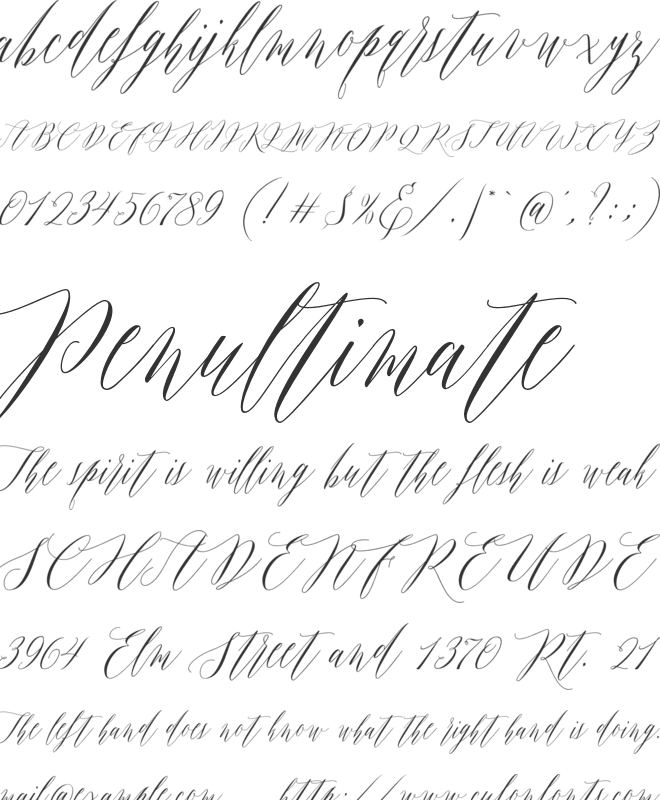 abcdefghijklmnopqrstuvwxyz
ABCDEFGHIJKLMNOPQRSTUVWXYZ
0123456789 (!#$%&/.|*¨`@´,?:;)
Penultimate
The spirit is willing but the flesh is weak
SCHADENFREUDE
3964 Elm Street and 1370 Rt. 21
The left hand does not know what the right hand is doing.
mail@example.com http://www.cufonfonts.com